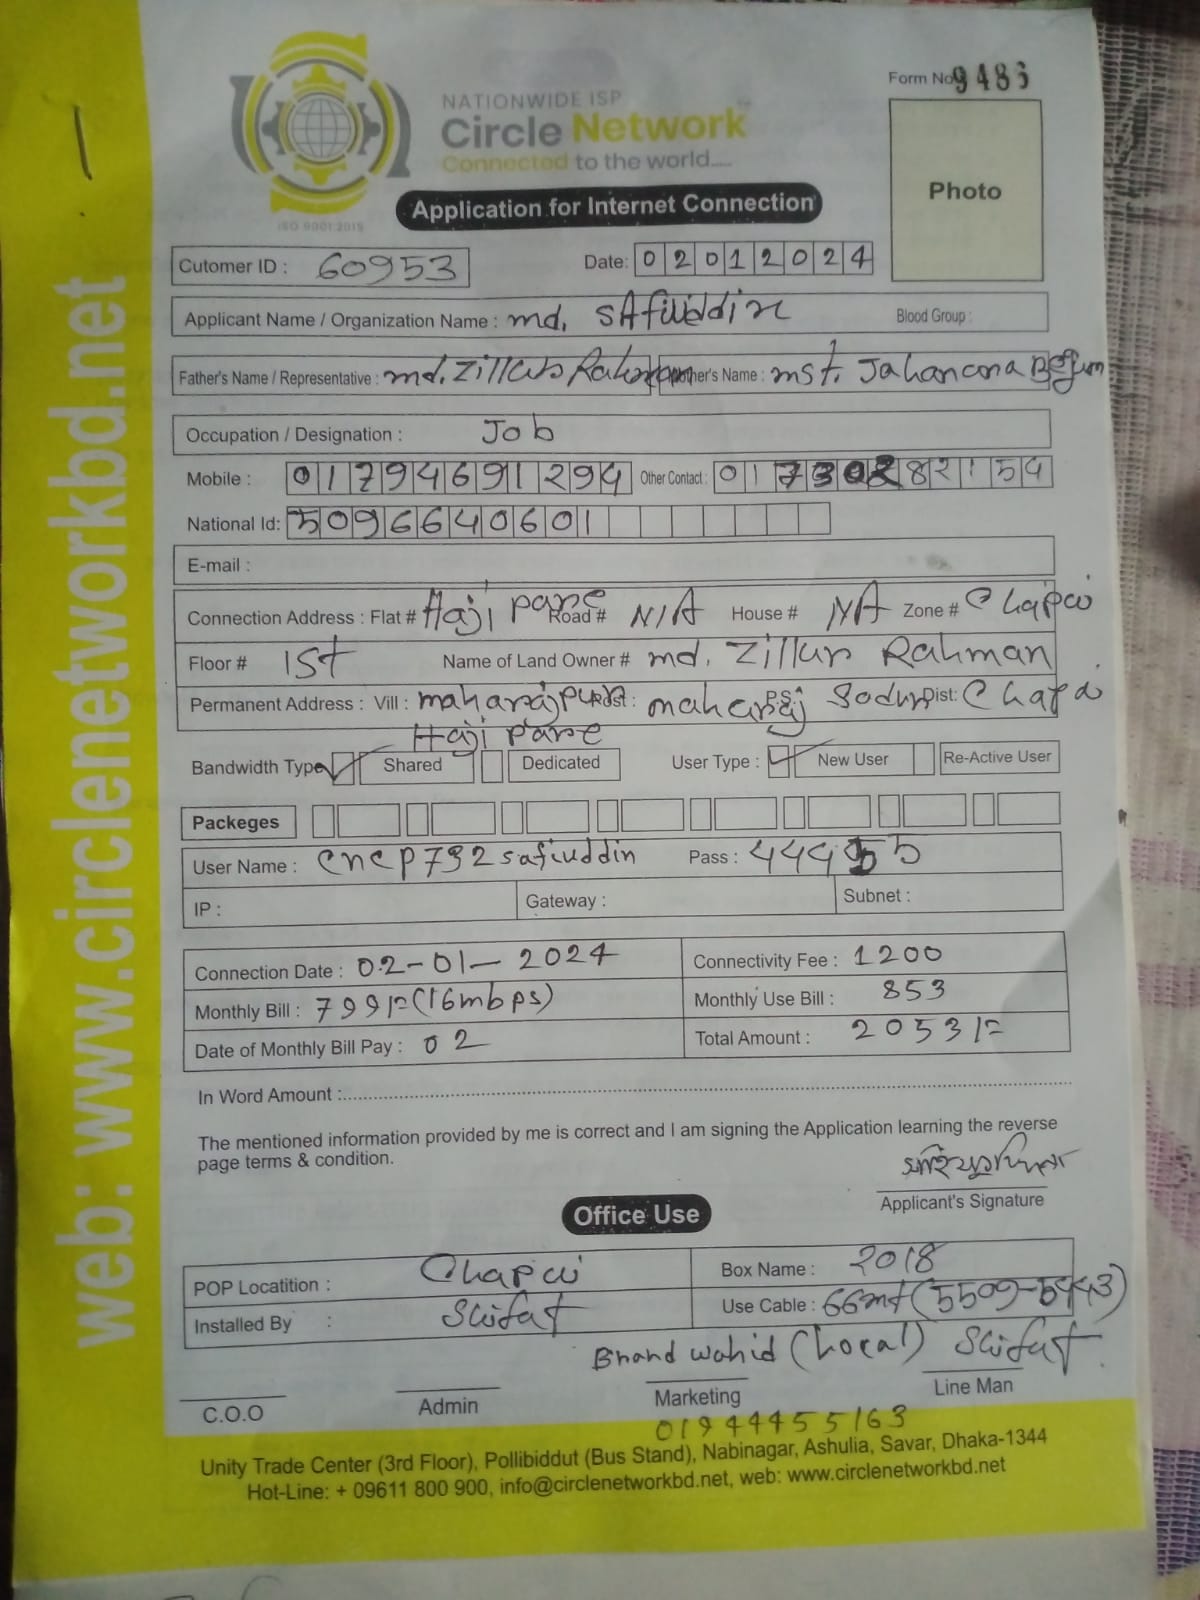 Form No 9486
NATIONWIDE ISP
Circle Network
Connected to the world.....
ISO 9001:2015
Application for Internet Connection
Photo
Cutomer ID : 60953
Date: 02012024
Applicant Name / Organization Name : md. SAfiuddin Blood Group :
Father's Name / Representative : md. Zillur Rahman Mother's Name : mst. Jahanara Begum
Occupation / Designation : Job
Mobile : 01794691294 Other Contact : 01730282154
National Id: 5096640601
E-mail :
Connection Address : Flat # Haji para Road # N/A House # N/A Zone # Chapai
Floor # 1st Name of Land Owner # md. Zillur Rahman
Permanent Address : Vill : maharajpur Post : maharaj PS: Sodur Dist: Chapai
Haji para
Bandwidth Type Shared Dedicated User Type : New User Re-Active User
Packeges
User Name : cncp792safiuddin Pass : 44455
IP : Gateway : Subnet :
Connection Date : 02-01-2024 Connectivity Fee : 1200
Monthly Bill : 799/= (16mbps) Monthly Use Bill : 853
Date of Monthly Bill Pay : 02 Total Amount : 2053/=
In Word Amount :
The mentioned information provided by me is correct and I am signing the Application learning the reverse
page terms & condition.
Applicant's Signature
Office Use
POP Locatition : Chapai Box Name : 2018
Installed By : Sifat Use Cable : 66mt (5509-5443)
Brand Wahid (Local) Sifat
C.O.O Admin Marketing Line Man
01944455163
Unity Trade Center (3rd Floor), Pollibiddut (Bus Stand), Nabinagar, Ashulia, Savar, Dhaka-1344
Hot-Line: + 09611 800 900, info@circlenetworkbd.net, web: www.circlenetworkbd.net
web: www.circlenetworkbd.net